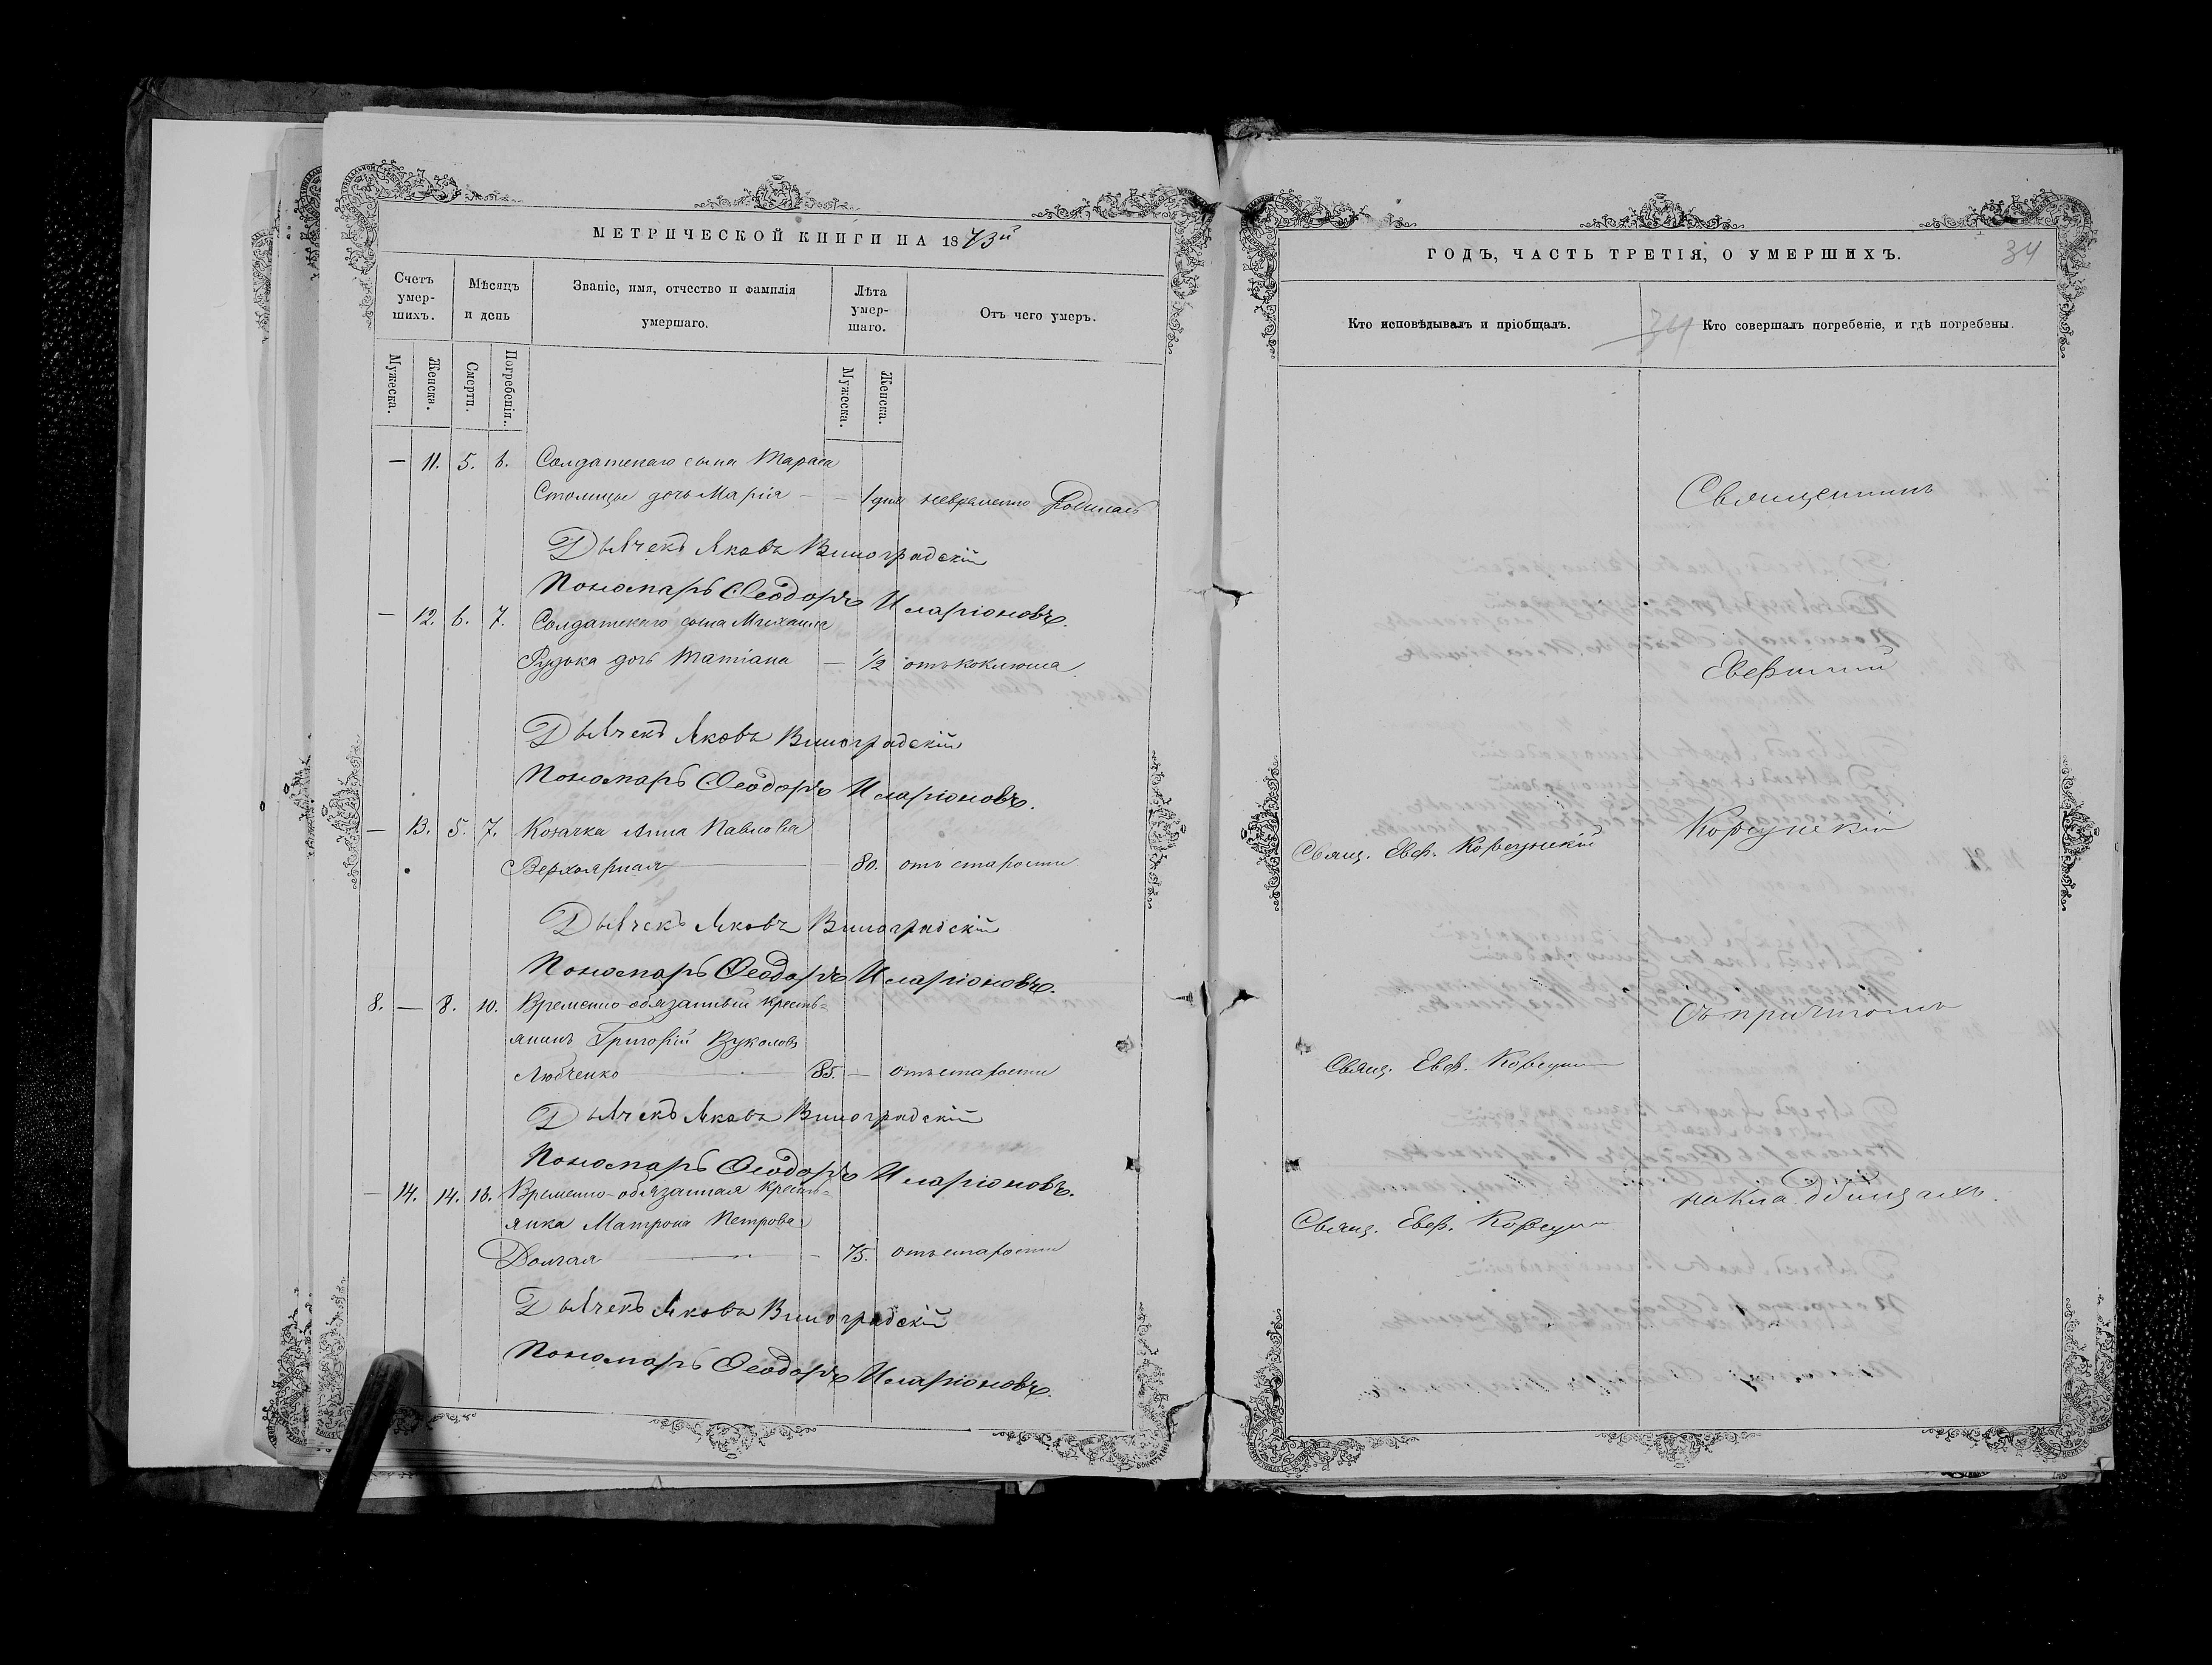 МЕТРИЧЕСКОЙ КНИГИ НА 1873й
Счетъ умер-шихъ.
Мѣсяцъ и день
Званіе, имя, отчество и фамилія умершаго.
Лѣта умер-шаго.
Отъ чего умеръ.
Мужеска. Женска. Смерти. Погребенія. Мужеска. Женска.
— 11. 5. 6. Солдатскаго сына Тараса
Столицы дочь Марія — — 1 дня невременно родилась
Дьячекъ Яковъ Виноградскій
Пономарь Ѳеодоръ Иларіоновъ.
— 12. 6. 7. Солдатскаго сына Михаила
Рудька дочь Татіана — 1/2 отъ коклюша
Дьячекъ Яковъ Виноградскій
Пономарь Ѳеодоръ Иларіоновъ.
— 13. 5. 7. Козачка Анна Павлова
Верхоярная — 80. отъ старости
Дьячекъ Яковъ Виноградскій
Пономарь Ѳеодоръ Иларіоновъ.
8. — 8. 10. Временно-обязанный кресть=
янинъ Григорій Вуколовъ
Любченко 85. — отъ старости
Дьячекъ Яковъ Виноградскій
Пономарь Ѳеодоръ Иларіоновъ.
— 14. 14. 16. Временно-обязанная кресть=
янка Матрона Петрова
Долгая — 75. отъ старости
Дьячекъ Яковъ Виноградскій
Пономарь Ѳеодоръ Иларіоновъ.
ГОДЪ, ЧАСТЬ ТРЕТІЯ, О УМЕРШИХЪ.
34
Кто исповѣдывалъ и пріобщалъ.
34
Кто совершалъ погребеніе, и гдѣ погребены.
Священникъ
Евфимій
Корсунскій
Свящ. Евф. Корсунскій
съ причтомъ
Свящ. Евф. Корсун
на кладбищахъ.
Свящ. Евф. Корсун